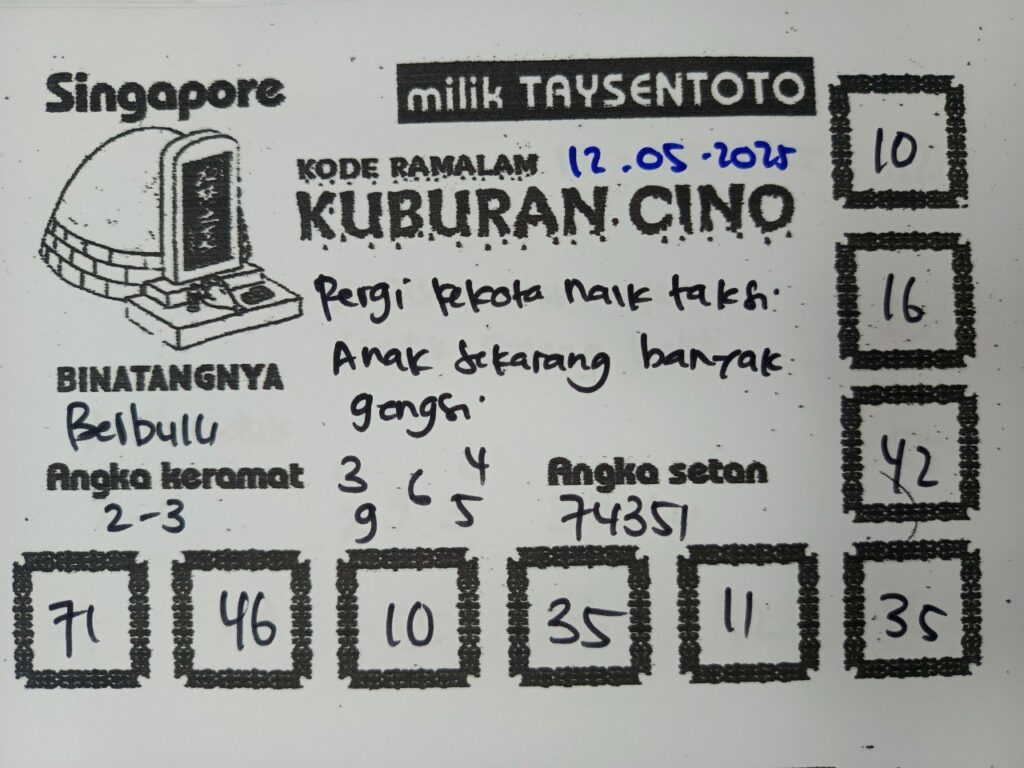 Singapore
milik TAYSENTOTO
KODE RAMALAM 12.05.2025
KUBURAN CINO
Pergi kekota naik taksi.
Anak sekarang banyak
gengsi.
BINATANGNYA
Berbulu
Angka keramat
2-3
3 6 4
9 5
Angka setan
74351
10
16
42
71 46 10 35 11 35